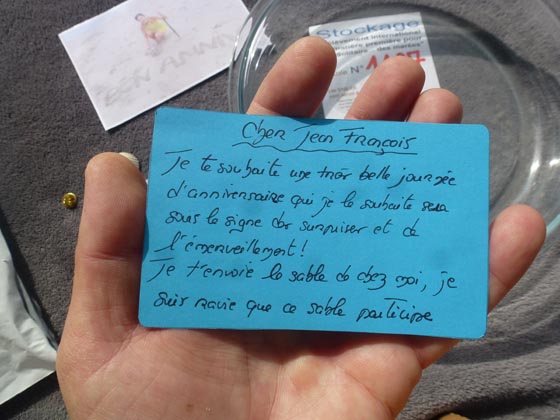 BON ANNIV
Stockage
Prélèvement international
matière première pour
N° 1107
Cher Jean François
Je te souhaite une très belle journée
d'anniversaire qui je le souhaite sera
sous le signe des surprises et de
l'émerveillement!
Je t'envoie le sable de chez moi, je
suis ravie que ce sable participe